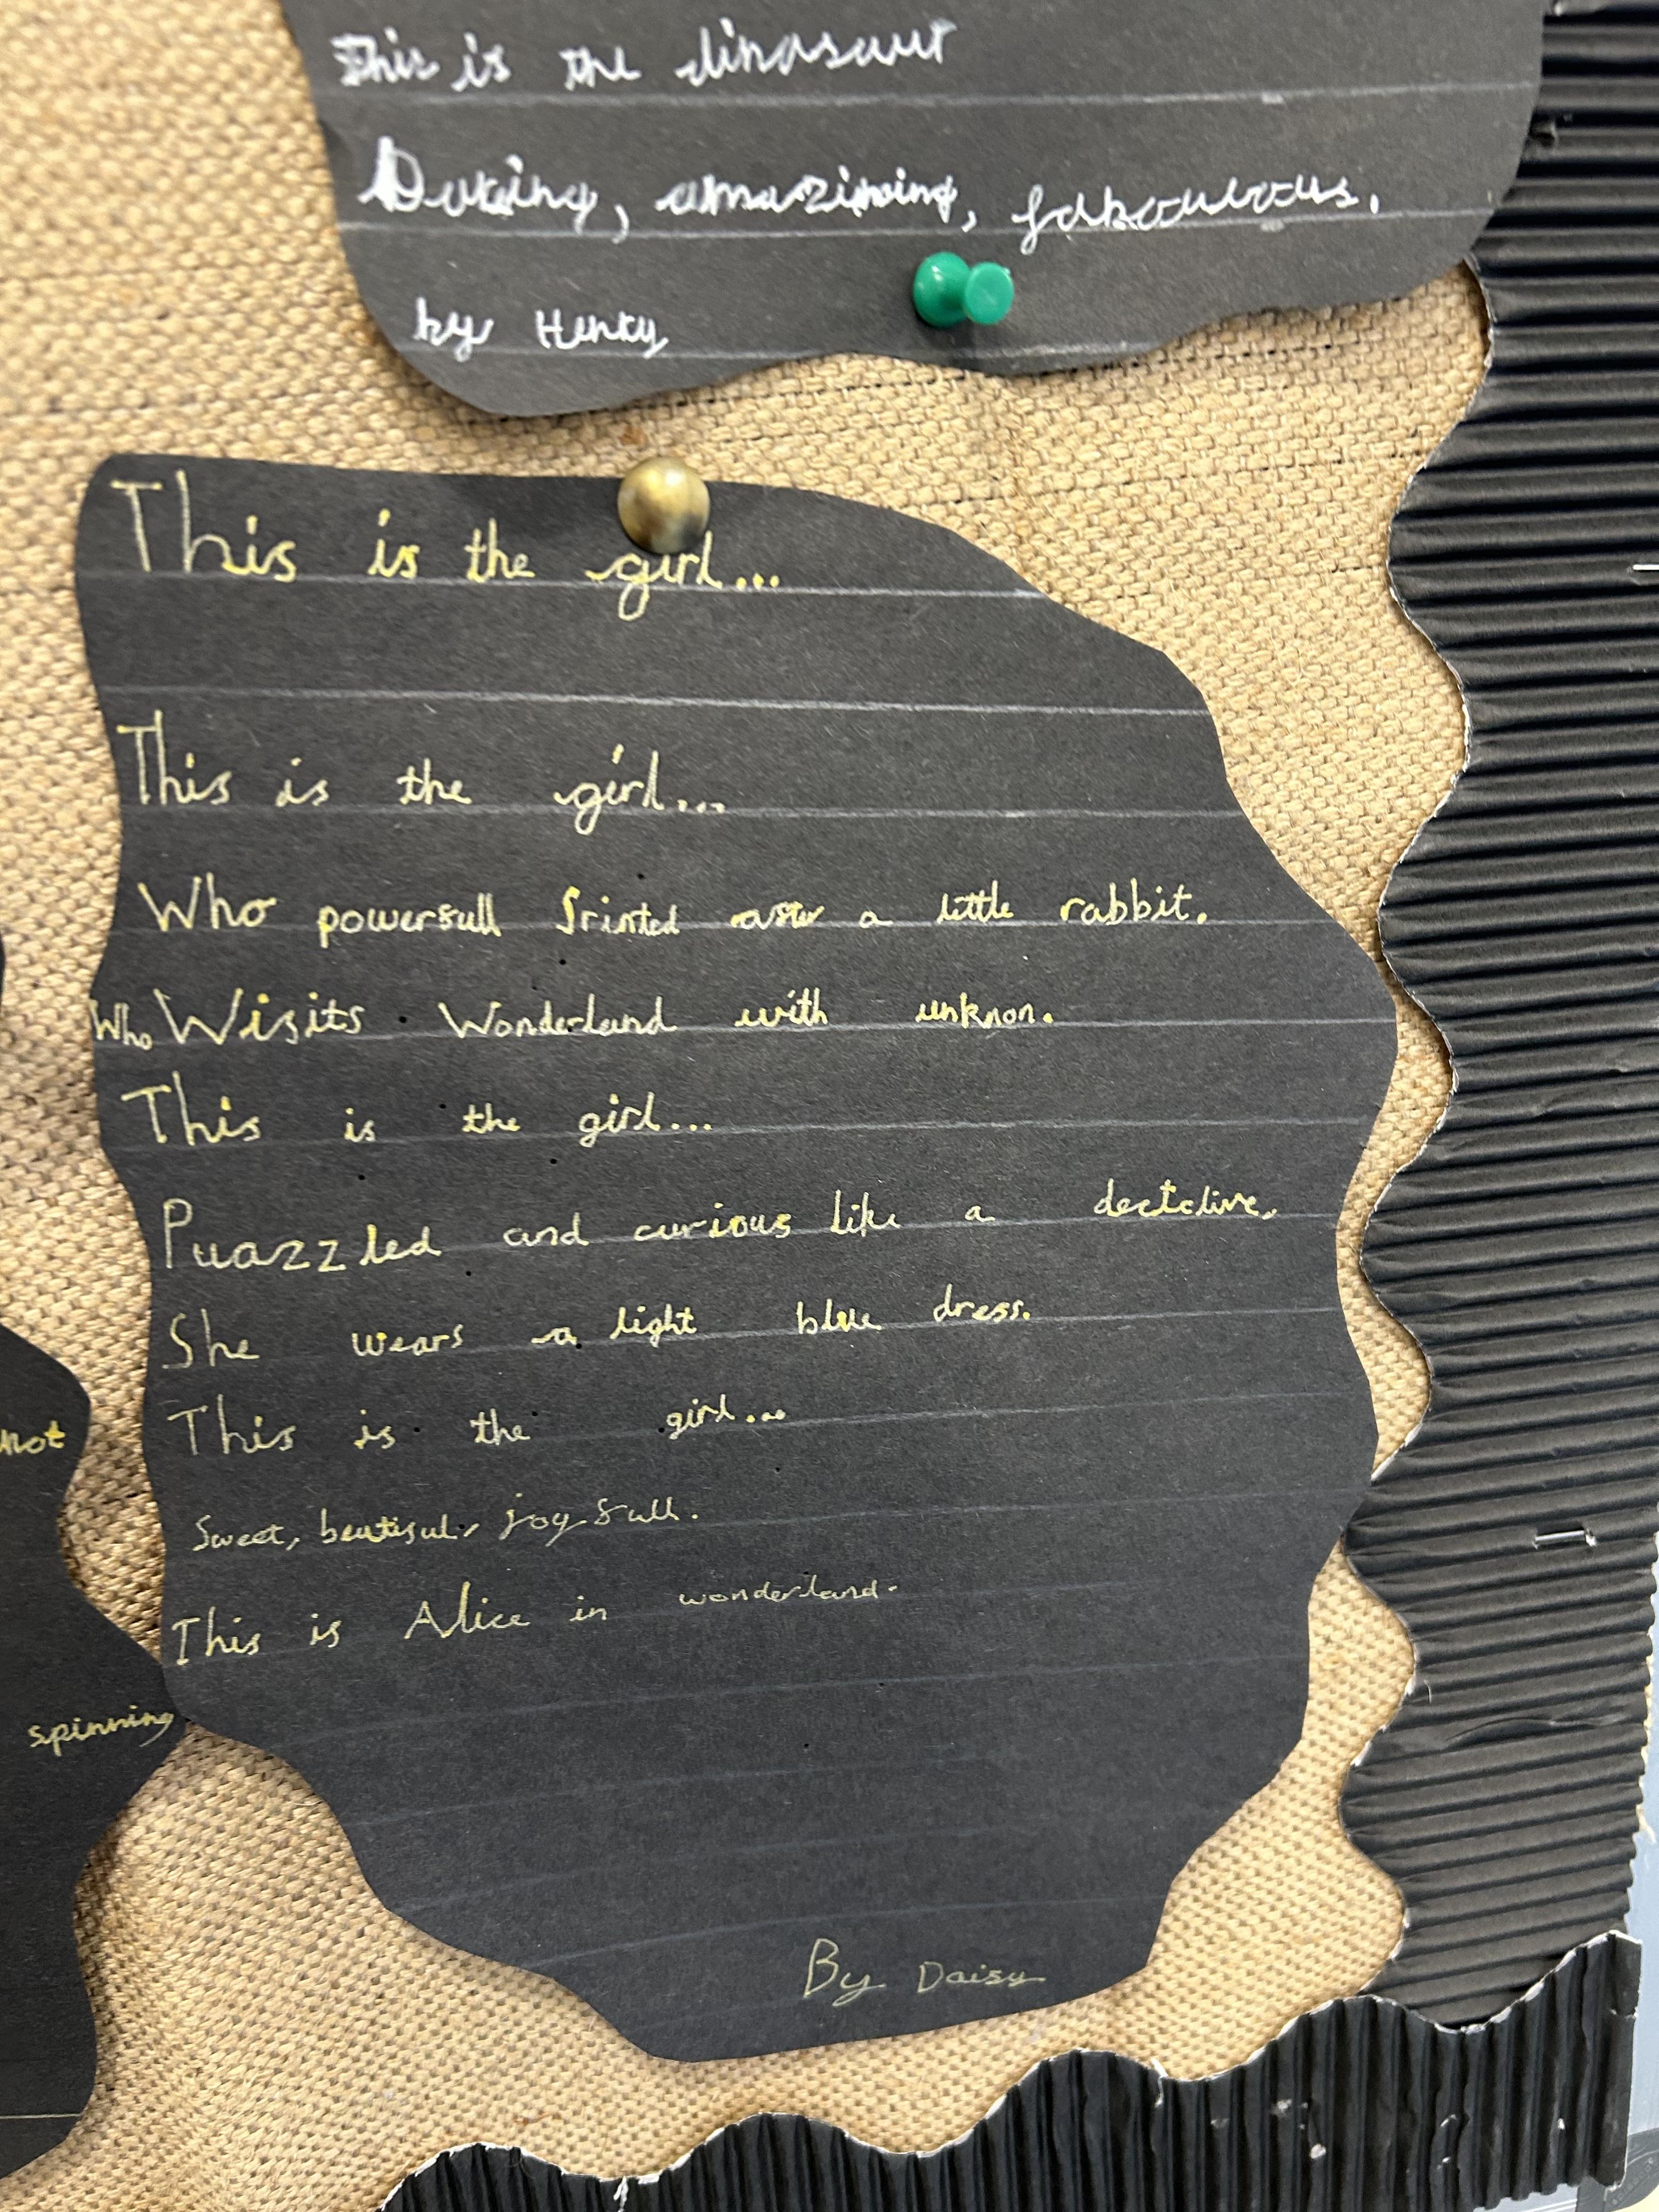 This is the dinasaur
Daring, amazining, faboulous.
by Henry
This is the girl...
This is the girl...
Who powerfull Srinted after a little rabbit.
Who Wisits Wonderland with unknon.
This is the girl...
Puazzled and curious like a dectctive.
She wears a light blue dress.
This is the girl...
Sweet, beutiful, joyfull.
This is Alice in wonderland.
By Daisy
not
spinning